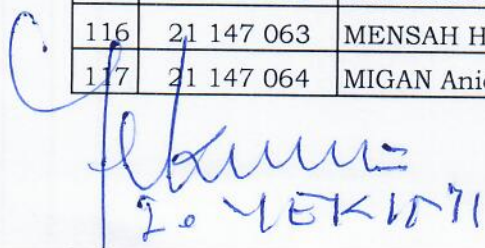 116 21 147 063 MENSAH H
117 21 147 064 MIGAN Ani